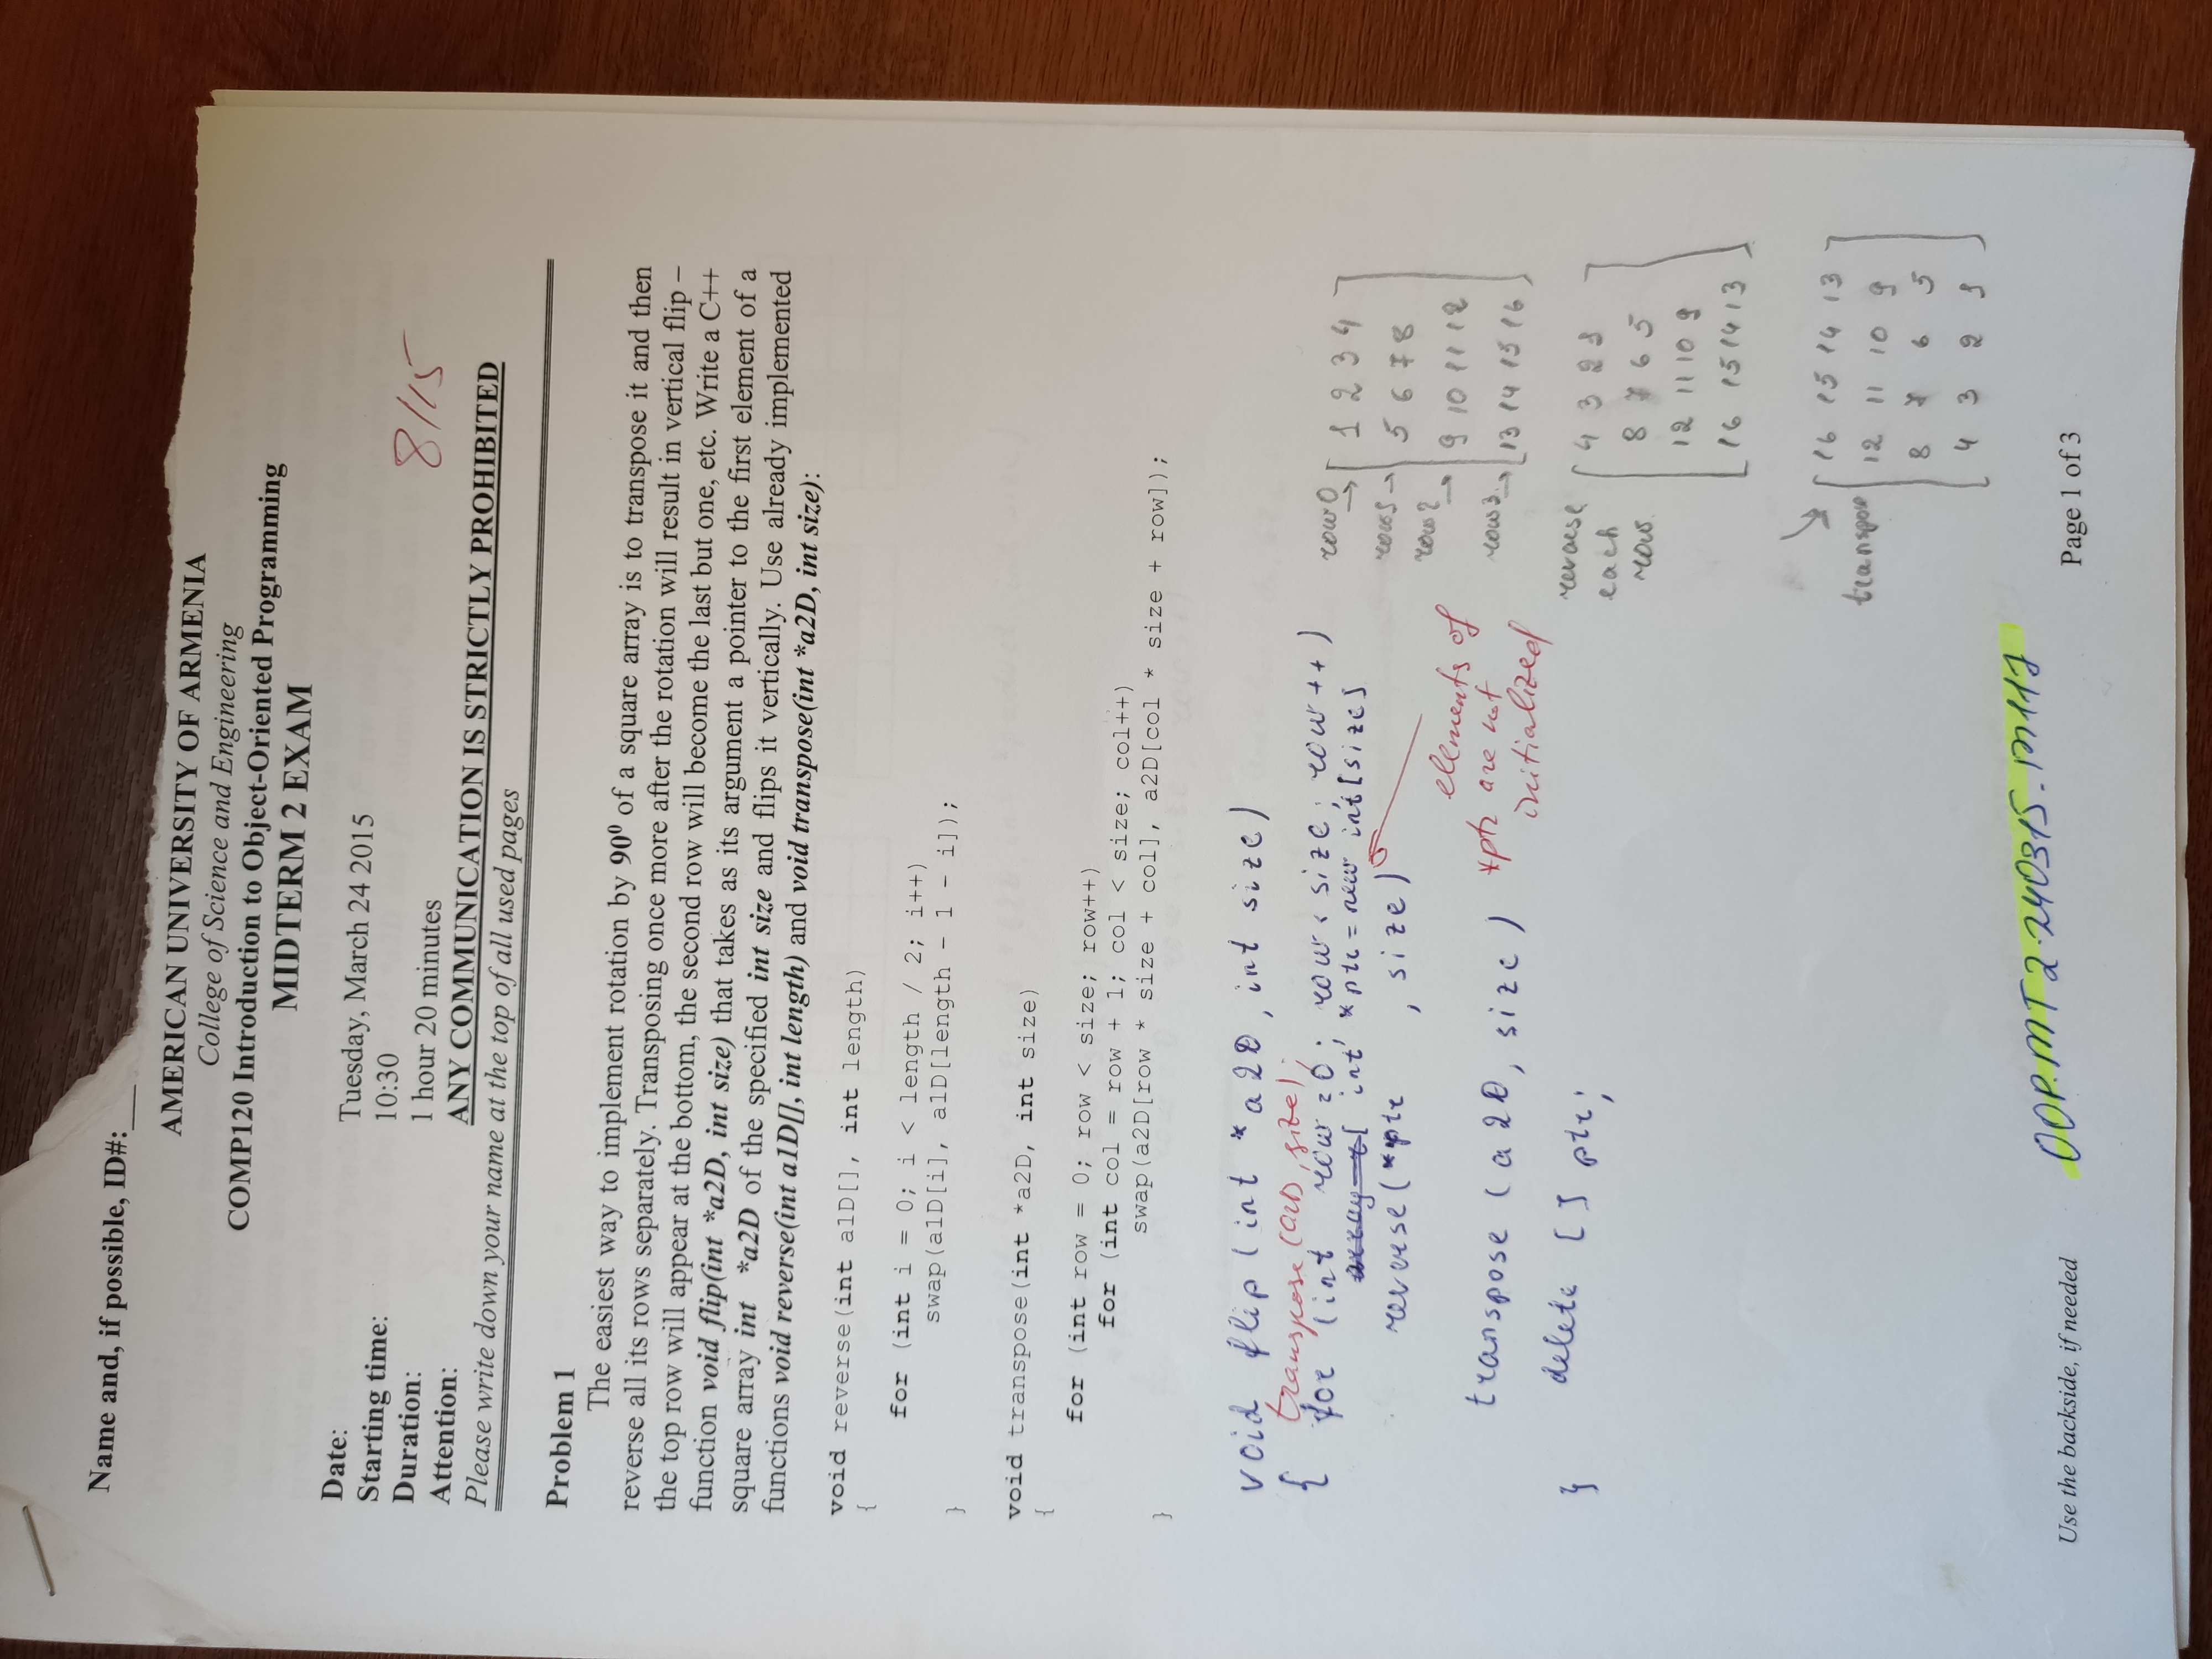 Name and, if possible, ID#:___
AMERICAN UNIVERSITY OF ARMENIA
College of Science and Engineering
COMP120 Introduction to Object-Oriented Programming
MIDTERM 2 EXAM
Date: Tuesday, March 24 2015
Starting time: 10:30
Duration: 1 hour 20 minutes
8/15
Attention: ANY COMMUNICATION IS STRICTLY PROHIBITED
Please write down your name at the top of all used pages
Problem 1
The easiest way to implement rotation by 90⁰ of a square array is to transpose it and then
reverse all its rows separately. Transposing once more after the rotation will result in vertical flip –
the top row will appear at the bottom, the second row will become the last but one, etc. Write a C++
function void flip(int *a2D, int size) that takes as its argument a pointer to the first element of a
square array int *a2D of the specified int size and flips it vertically. Use already implemented
functions void reverse(int a1D[], int length) and void transpose(int *a2D, int size):
void reverse(int a1D[], int length)
{
for (int i = 0; i < length / 2; i++)
swap(a1D[i], a1D[length - 1 - i]);
}
void transpose(int *a2D, int size)
{
for (int row = 0; row < size; row++)
for (int col = row + 1; col < size; col++)
swap(a2D[row * size + col], a2D[col * size + row]);
}
void flip (int *a2D, int size)
transpose (a2D, size);
{ for (int row = 0; row < size; row++)
int *ptr = new int[size]
reverse (*ptr , size)
elements of
*ptr are not
initialized
transpose (a2D, size)
delete [] ptr;
}
row0 → 1 2 3 4
row1 → 5 6 7 8
row2 → 9 10 11 12
row3 → 13 14 15 16
reverse
each
row
4 3 2 1
8 7 6 5
12 11 10 9
16 15 14 13
transpose
16 15 14 13
12 11 10 9
8 7 6 5
4 3 2 1
OOP.MT2.240315.M117
Use the backside, if needed
Page 1 of 3